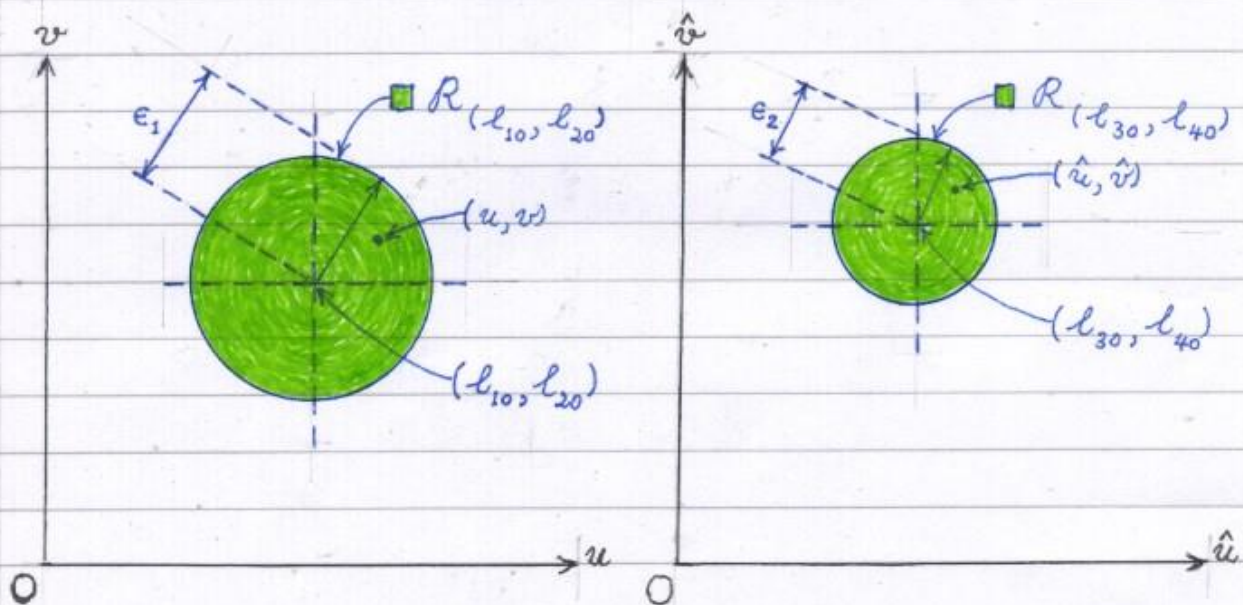 v
ε₁
R(l₁₀, l₂₀)
(u, v)
(l₁₀, l₂₀)
O
u
v̂
ε₂
R(l₃₀, l₄₀)
(û, v̂)
(l₃₀, l₄₀)
O
û